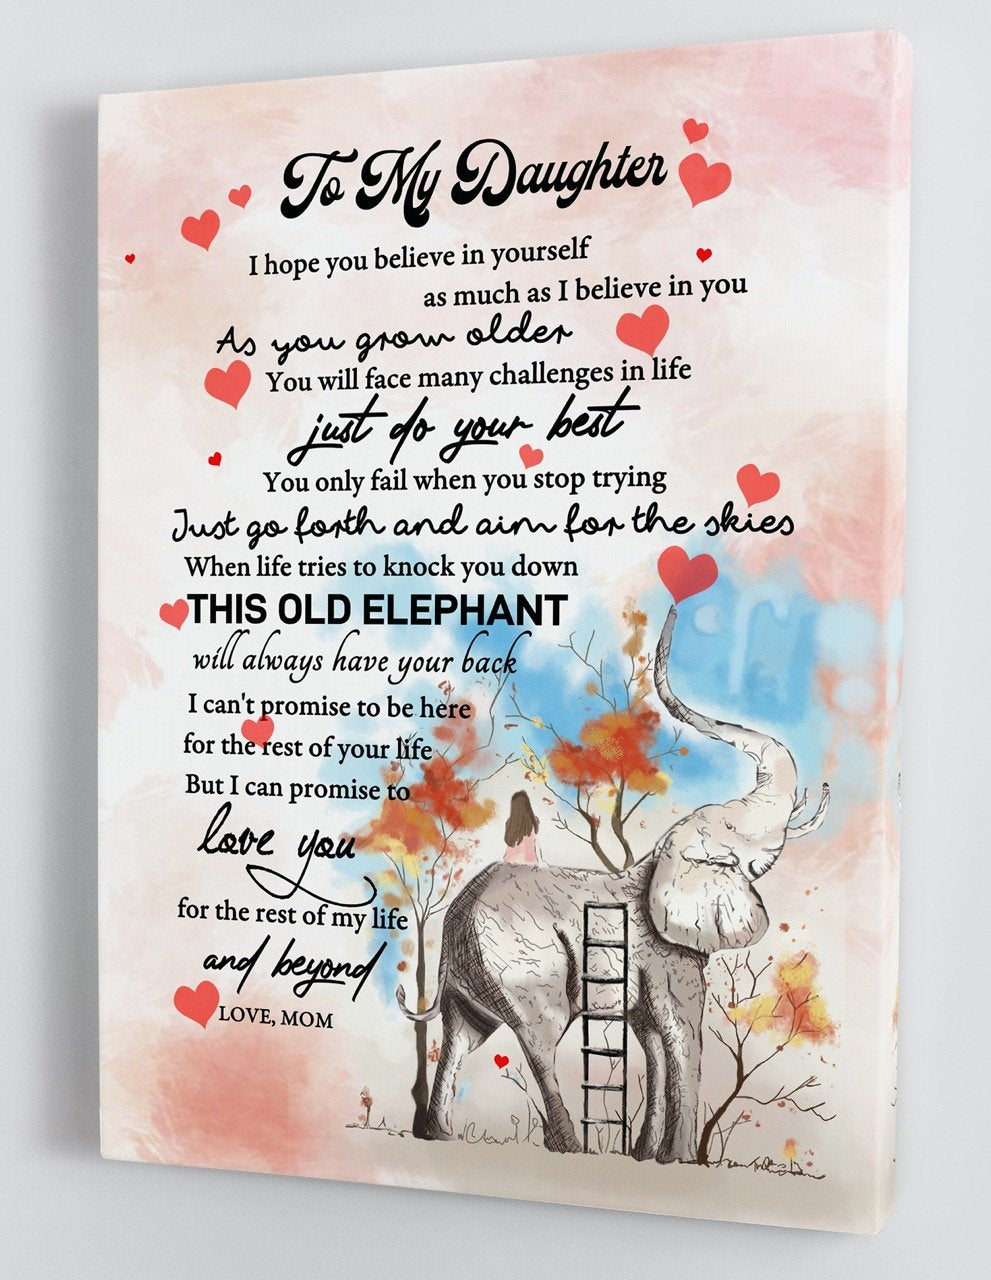 To My Daughter
I hope you believe in yourself
as much as I believe in you
As you grow older
You will face many challenges in life
just do your best
You only fail when you stop trying
Just go forth and aim for the skies
When life tries to knock you down
THIS OLD ELEPHANT
will always have your back
I can't promise to be here
for the rest of your life
But I can promise to
love you
for the rest of my life
and beyond
LOVE, MOM